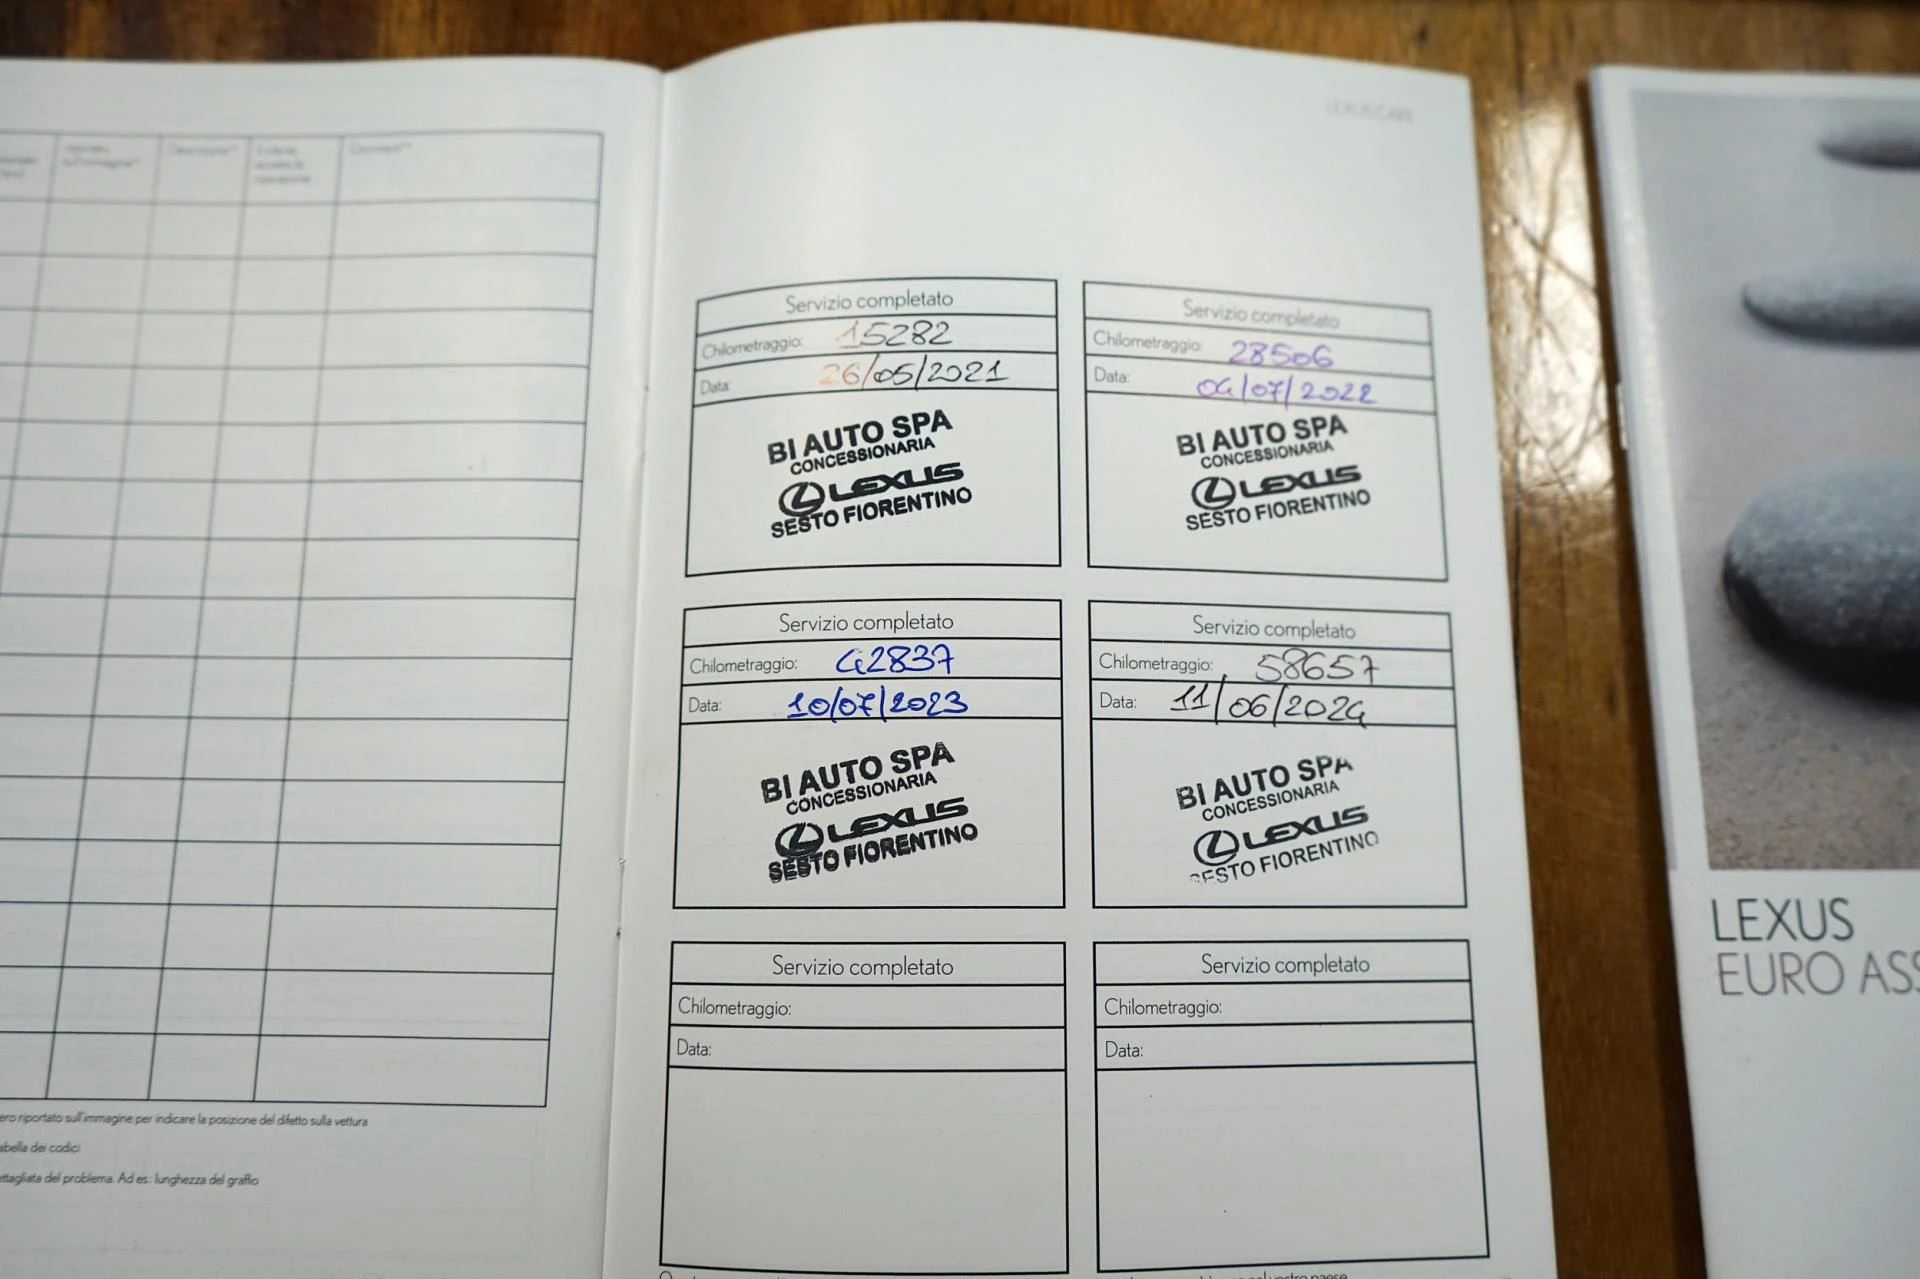 LEXUS CARE
sull'immagine*
Descrizione**
Commenti**
ero riportato sull'immagine per indicare la posizione del difetto sulla vettura
abella dei codici
ettagliata del problema. Ad es.: lunghezza del graffio
Servizio completato
Chilometraggio: 15282
Data: 26/05/2021
BI AUTO SPA
CONCESSIONARIA
LEXUS
SESTO FIORENTINO
Servizio completato
Chilometraggio: 28506
Data: 04/07/2022
BI AUTO SPA
CONCESSIONARIA
LEXUS
SESTO FIORENTINO
Servizio completato
Chilometraggio: 42837
Data: 10/07/2023
BI AUTO SPA
CONCESSIONARIA
LEXUS
SESTO FIORENTINO
Servizio completato
Chilometraggio: 58657
Data: 11/06/2024
BI AUTO SPA
CONCESSIONARIA
LEXUS
SESTO FIORENTINO
Servizio completato
Chilometraggio:
Data:
Servizio completato
Chilometraggio:
Data:
LEXUS
EURO ASS